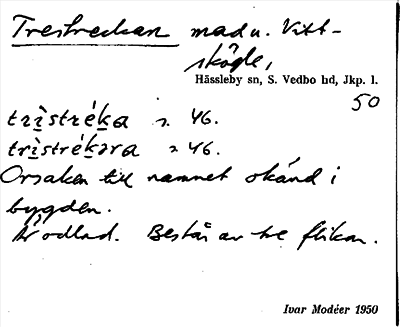 Trestreckan mad u. Vitt-
sköfle,
Hässleby sn, S. Vedbo hd, Jkp. l.
50
trìstréka 46.
trìstrékəra 46.
Orsaken till namnet okänd i
bygden.
Är odlad. Består av tre flikar.
Ivar Modéer 1950